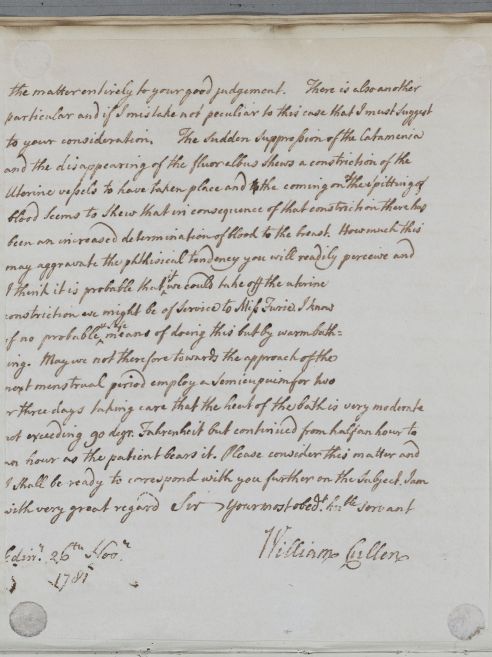 the matter entirely to your good judgement. There is also another
particular and if I mistake not peculiar to this case that I must suggest
to your consideration. The Sudden Suppression of the Catamenia
and the disappearing of the fluor albus shews a constriction of the
Uterine vessels to have taken place and the coming on of the spitting of
blood seems to shew that in consequence of that constriction there has
been an increased determination of blood to the breast. How much this
may aggravate the phthisical tendency you will readily perceive and
I think it is probable that if we could take off the uterine
constriction we might be of Service to Miss I know
of no probable & safe means of doing this but by warm bath=
ing. May we not therefore towards the approach of the
next menstrual period employ a Semicupium for two
or three days taking care that the heat of the bath is very moderate
not exceeding 90 degr. Fahrenheit but continued from half an hour to
an hour as the patient bears it. Please consider this matter and
I shall be ready to correspond with you further on the Subject. I am
with very great regard Sir Your most obedt. humble Servant
William Cullen
Edinr. 26th Novr.
1781